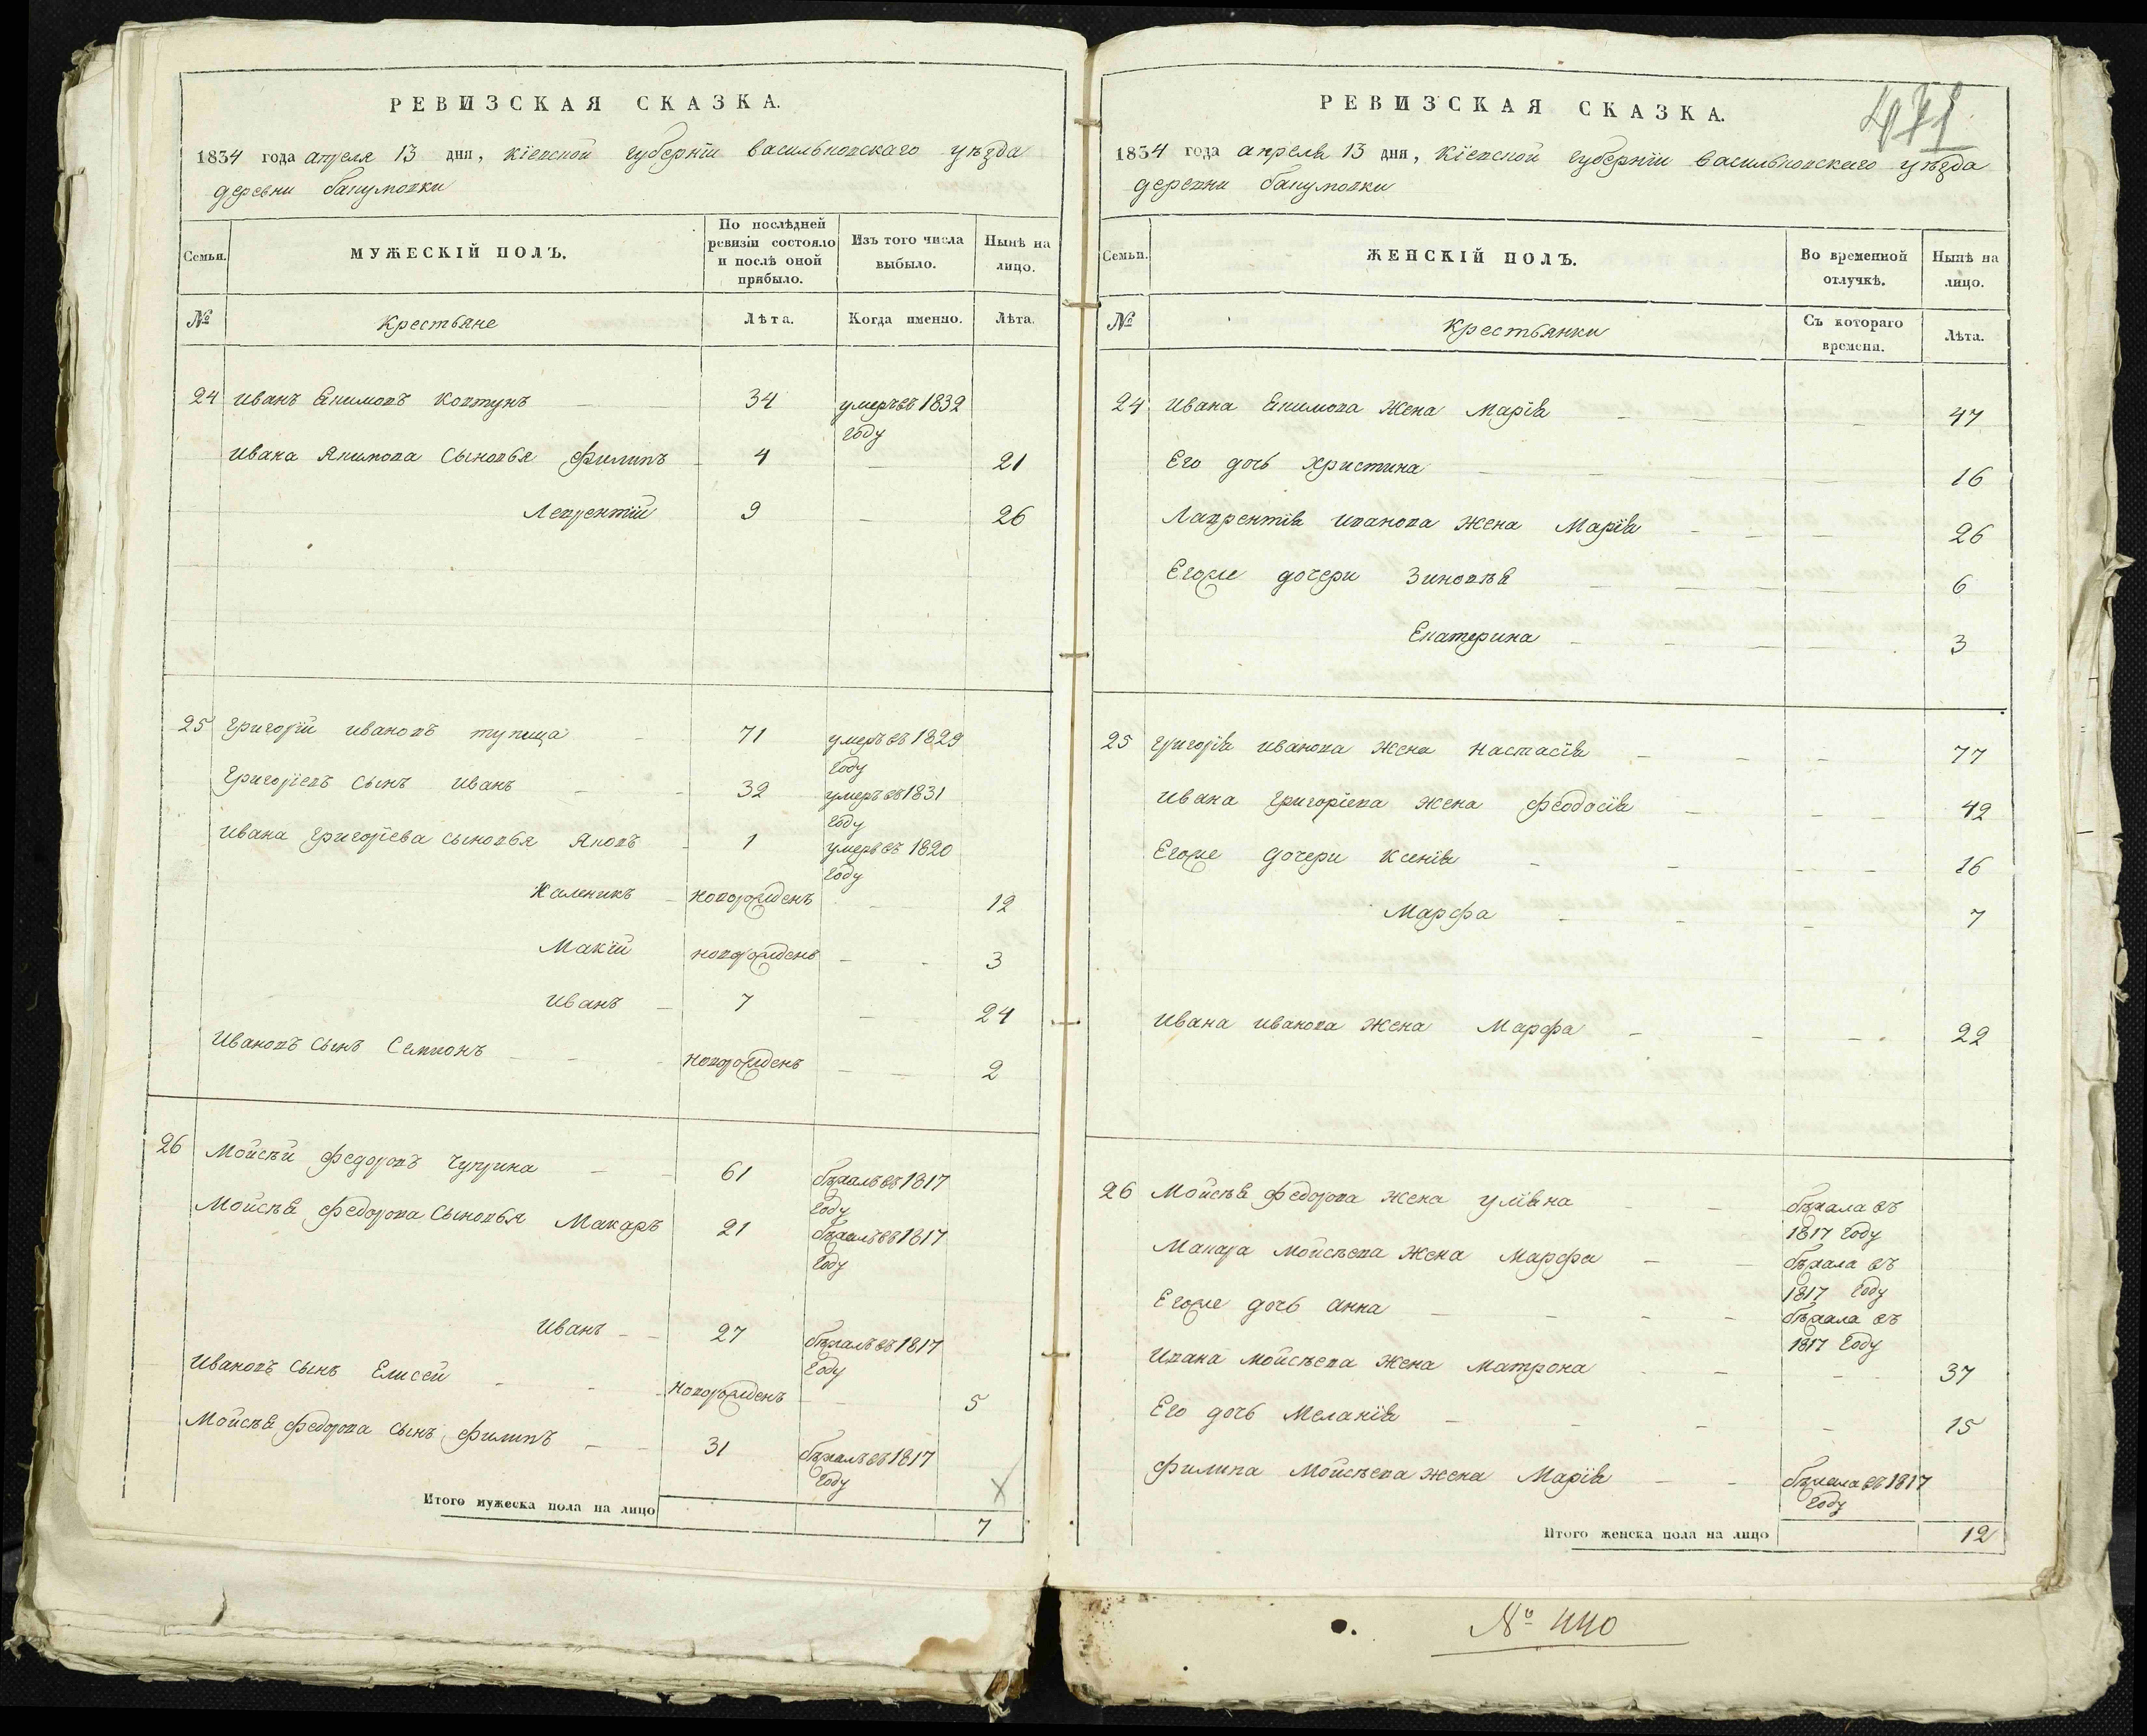 РЕВИЗСКАЯ СКАЗКА.
1834 года апреля 13 дня, Кіевской губерніи васильковскаго уѣзда
деревни бакумовки
Семьи. МУЖЕСКІЙ ПОЛЪ. По послѣдней ревизіи состояло и послѣ оной прибыло. Изъ того числа выбыло. Нынѣ на лицо.
№ Крестьяне Лѣта. Когда именно. Лѣта.
24 иванъ Екимовъ Ковтунъ 34 умеръ въ 1832
году
ивана Якимова сыновья Филипъ 4 21
Леврентій 9 26
25 григорій ивановъ тупица 71 умеръ въ 1829
году
григоріевъ сынъ иванъ 32 умеръ въ 1831
году
ивана григоріева сыновья Яковъ 1 умеръ въ 1820
году
Каленикъ новорожденъ 12
Макій новорожденъ 3
иванъ 7 24
ивановъ сынъ Семионъ новорожденъ 2
26 Мойсѣй Федоровъ Чуприна 61 бѣжалъ въ 1817
году
Мойсѣя Федорова сыновья Макаръ 21 бѣжалъ въ 1817
году
иванъ 27 бѣжалъ въ 1817
году
ивановъ сынъ Елисей новорожденъ 5
Мойсѣя Федорова сынъ Филипъ 31 бѣжалъ въ 1817
году
Итого мужеска пола на лицо 7
РЕВИЗСКАЯ СКАЗКА.
471
1834 года апреля 13 дня, Кіевской губерніи васильковскаго уѣзда
деревни бакумовки
Семьи. ЖЕНСКІЙ ПОЛЪ. Во временной отлучкѣ. Нынѣ на лицо.
№ Крестьянки Съ котораго времени. Лѣта.
24 ивана Екимова жена Марія 47
Его дочь христина 16
Лаврентія иванова жена Марія 26
Егоже дочери Зиновѣя 6
Екатерина 3
25 григорія иванова жена настасія 77
ивана григоріева жена феодосія 42
Егоже дочери ксенія 16
Марфа 7
ивана иванова жена Марфа 22
26 Мойсѣя федорова жена уліяна бѣжала въ
1817 году
Макара мойсѣева жена Марфа бѣжала въ
1817 году
Егоже дочь анна бѣжала въ
1817 году
ивана мойсѣева жена матрона 37
Его дочь Меланія 15
филипа Мойсѣева жена Марія бѣжала въ 1817
году
Итого женска пола на лицо 12
№ 440